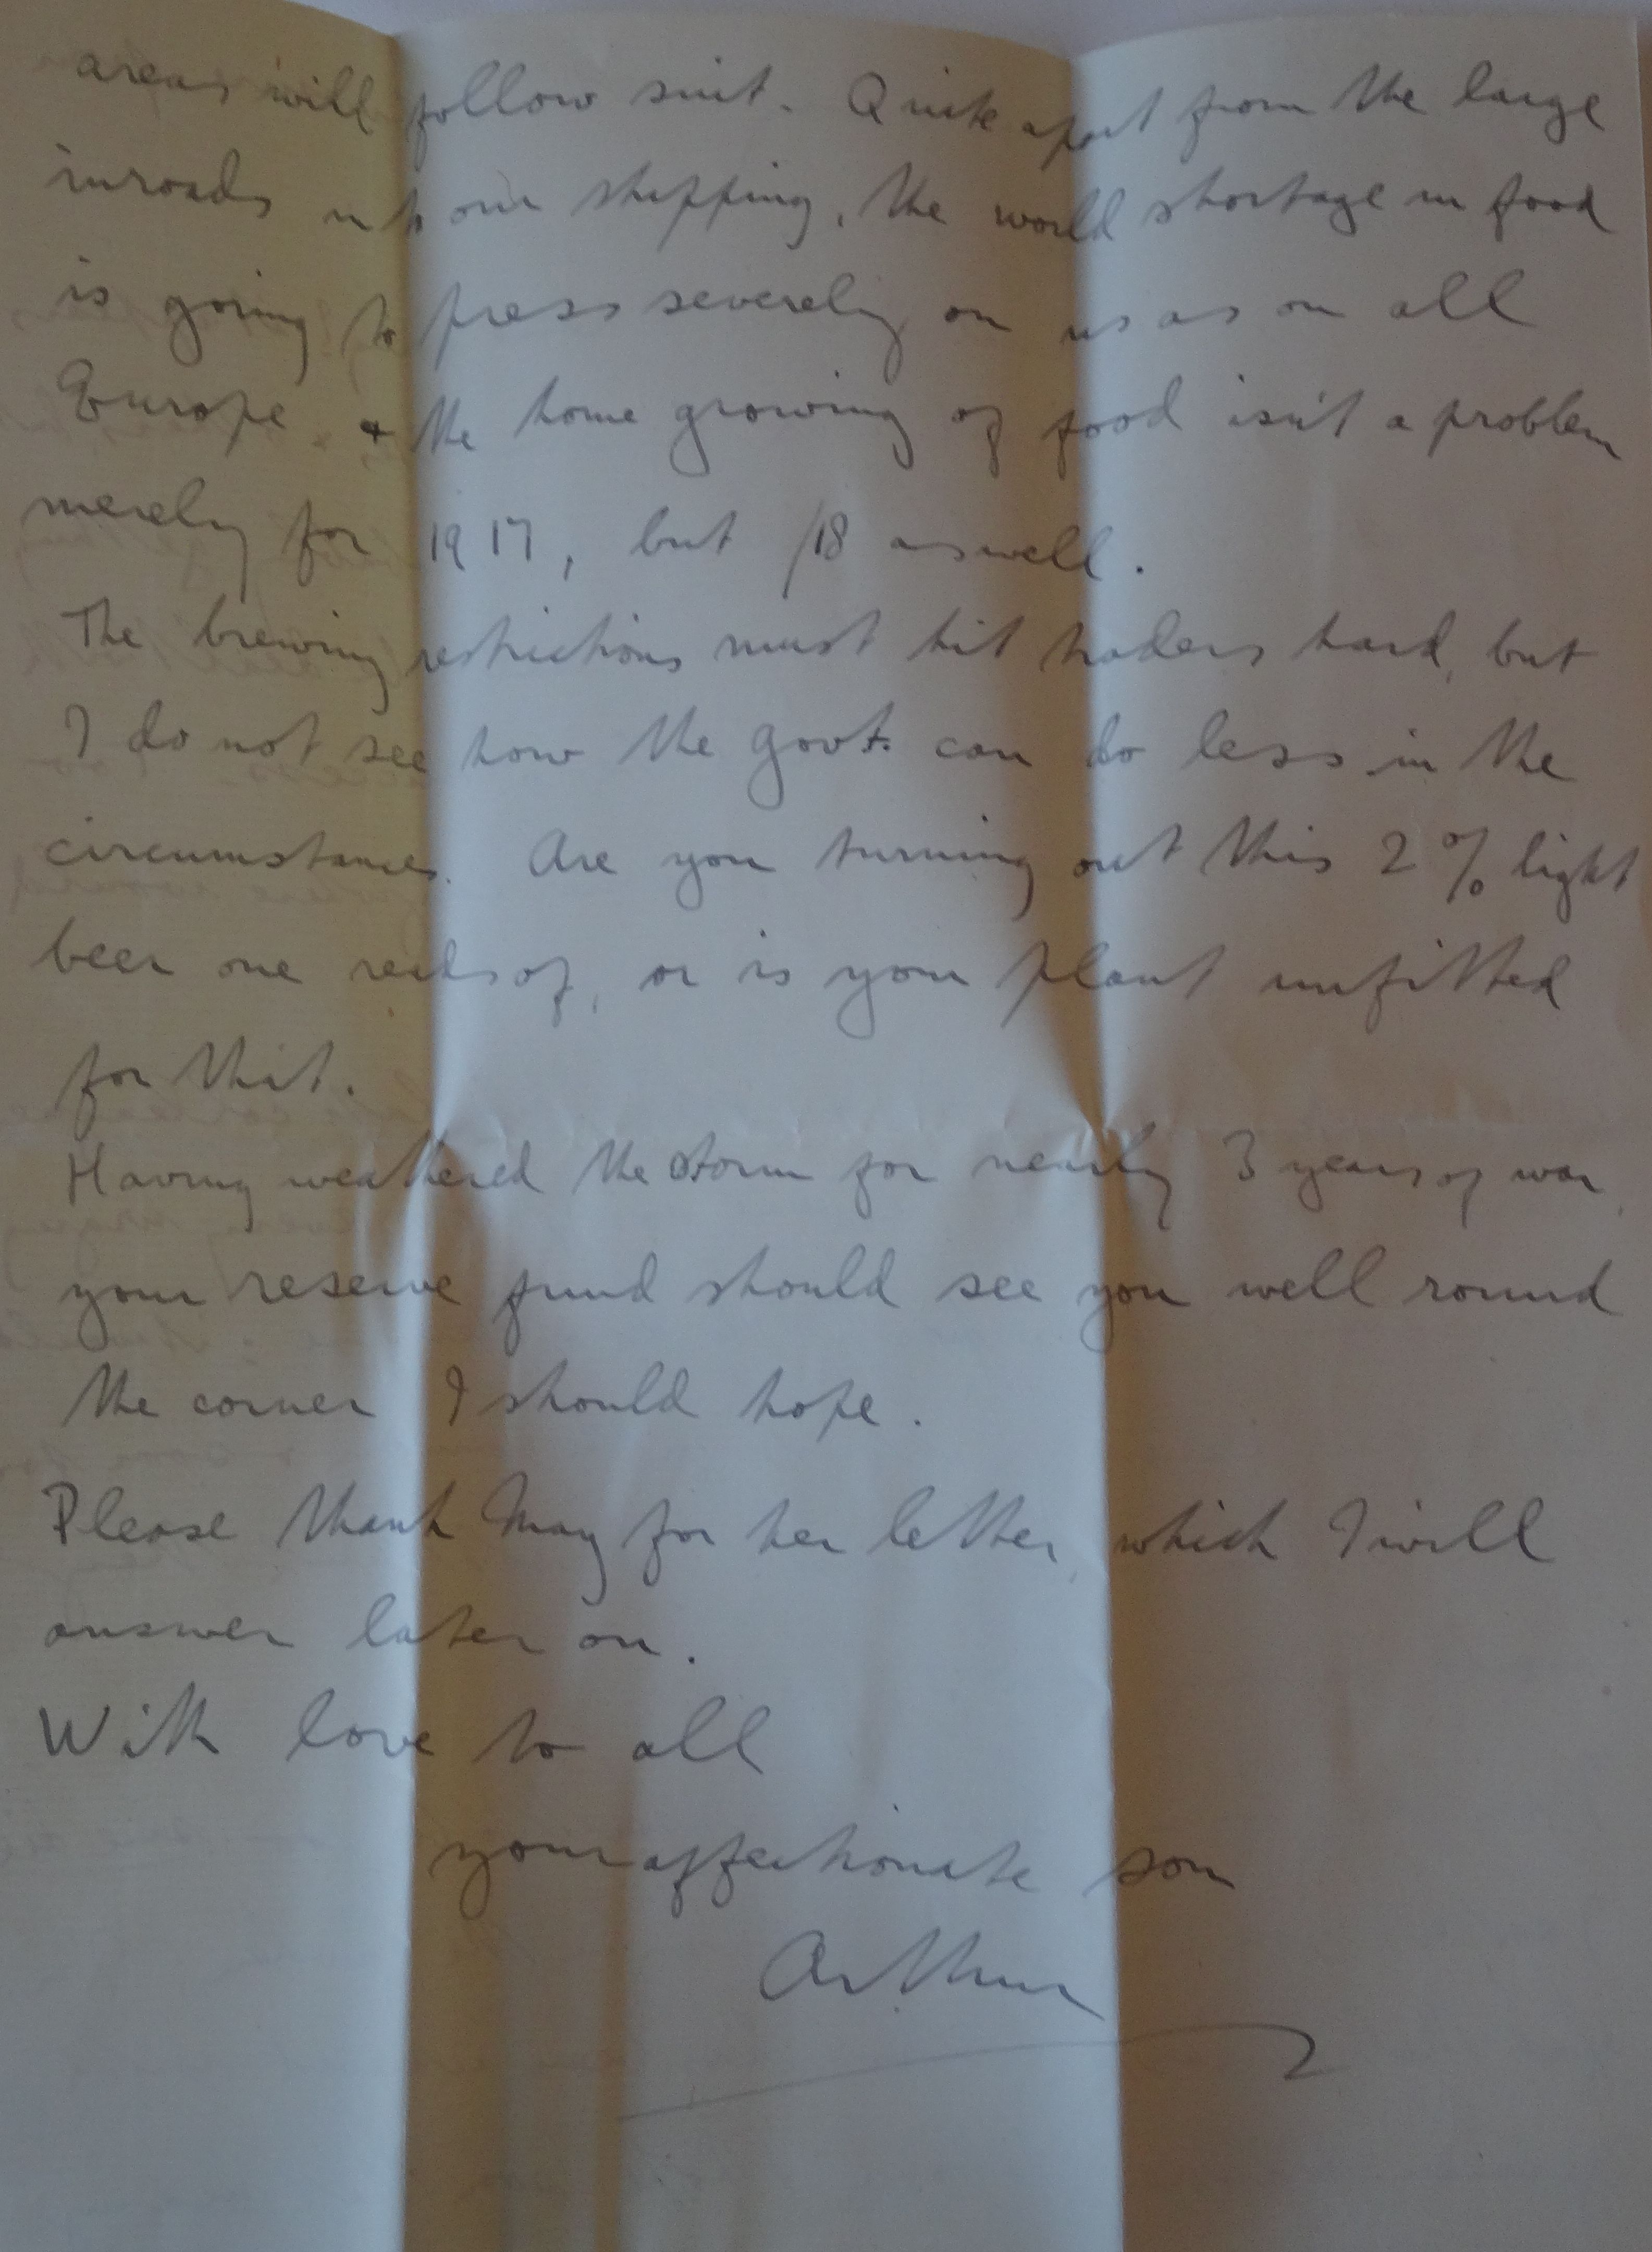 areas will follow suit. Quite apart from the large
inroads into our shipping, the world shortage in food
is going to press severely on us as on all
Europe & the home growing of food isn't a problem
merely for 1917, but /18 as well.
The brewing restrictions must hit traders hard, but
I do not see how the Govt. can do less in the
circumstances. Are you turning out this 2% light
beer one reads of, or is your plant unfitted
for this.
Having weathered the storm for nearly 3 years of war,
your reserve fund should see you well round
the corner I should hope.
Please thank May for her letter, which I will
answer later on.
With love to all
your affectionate son
Arthur